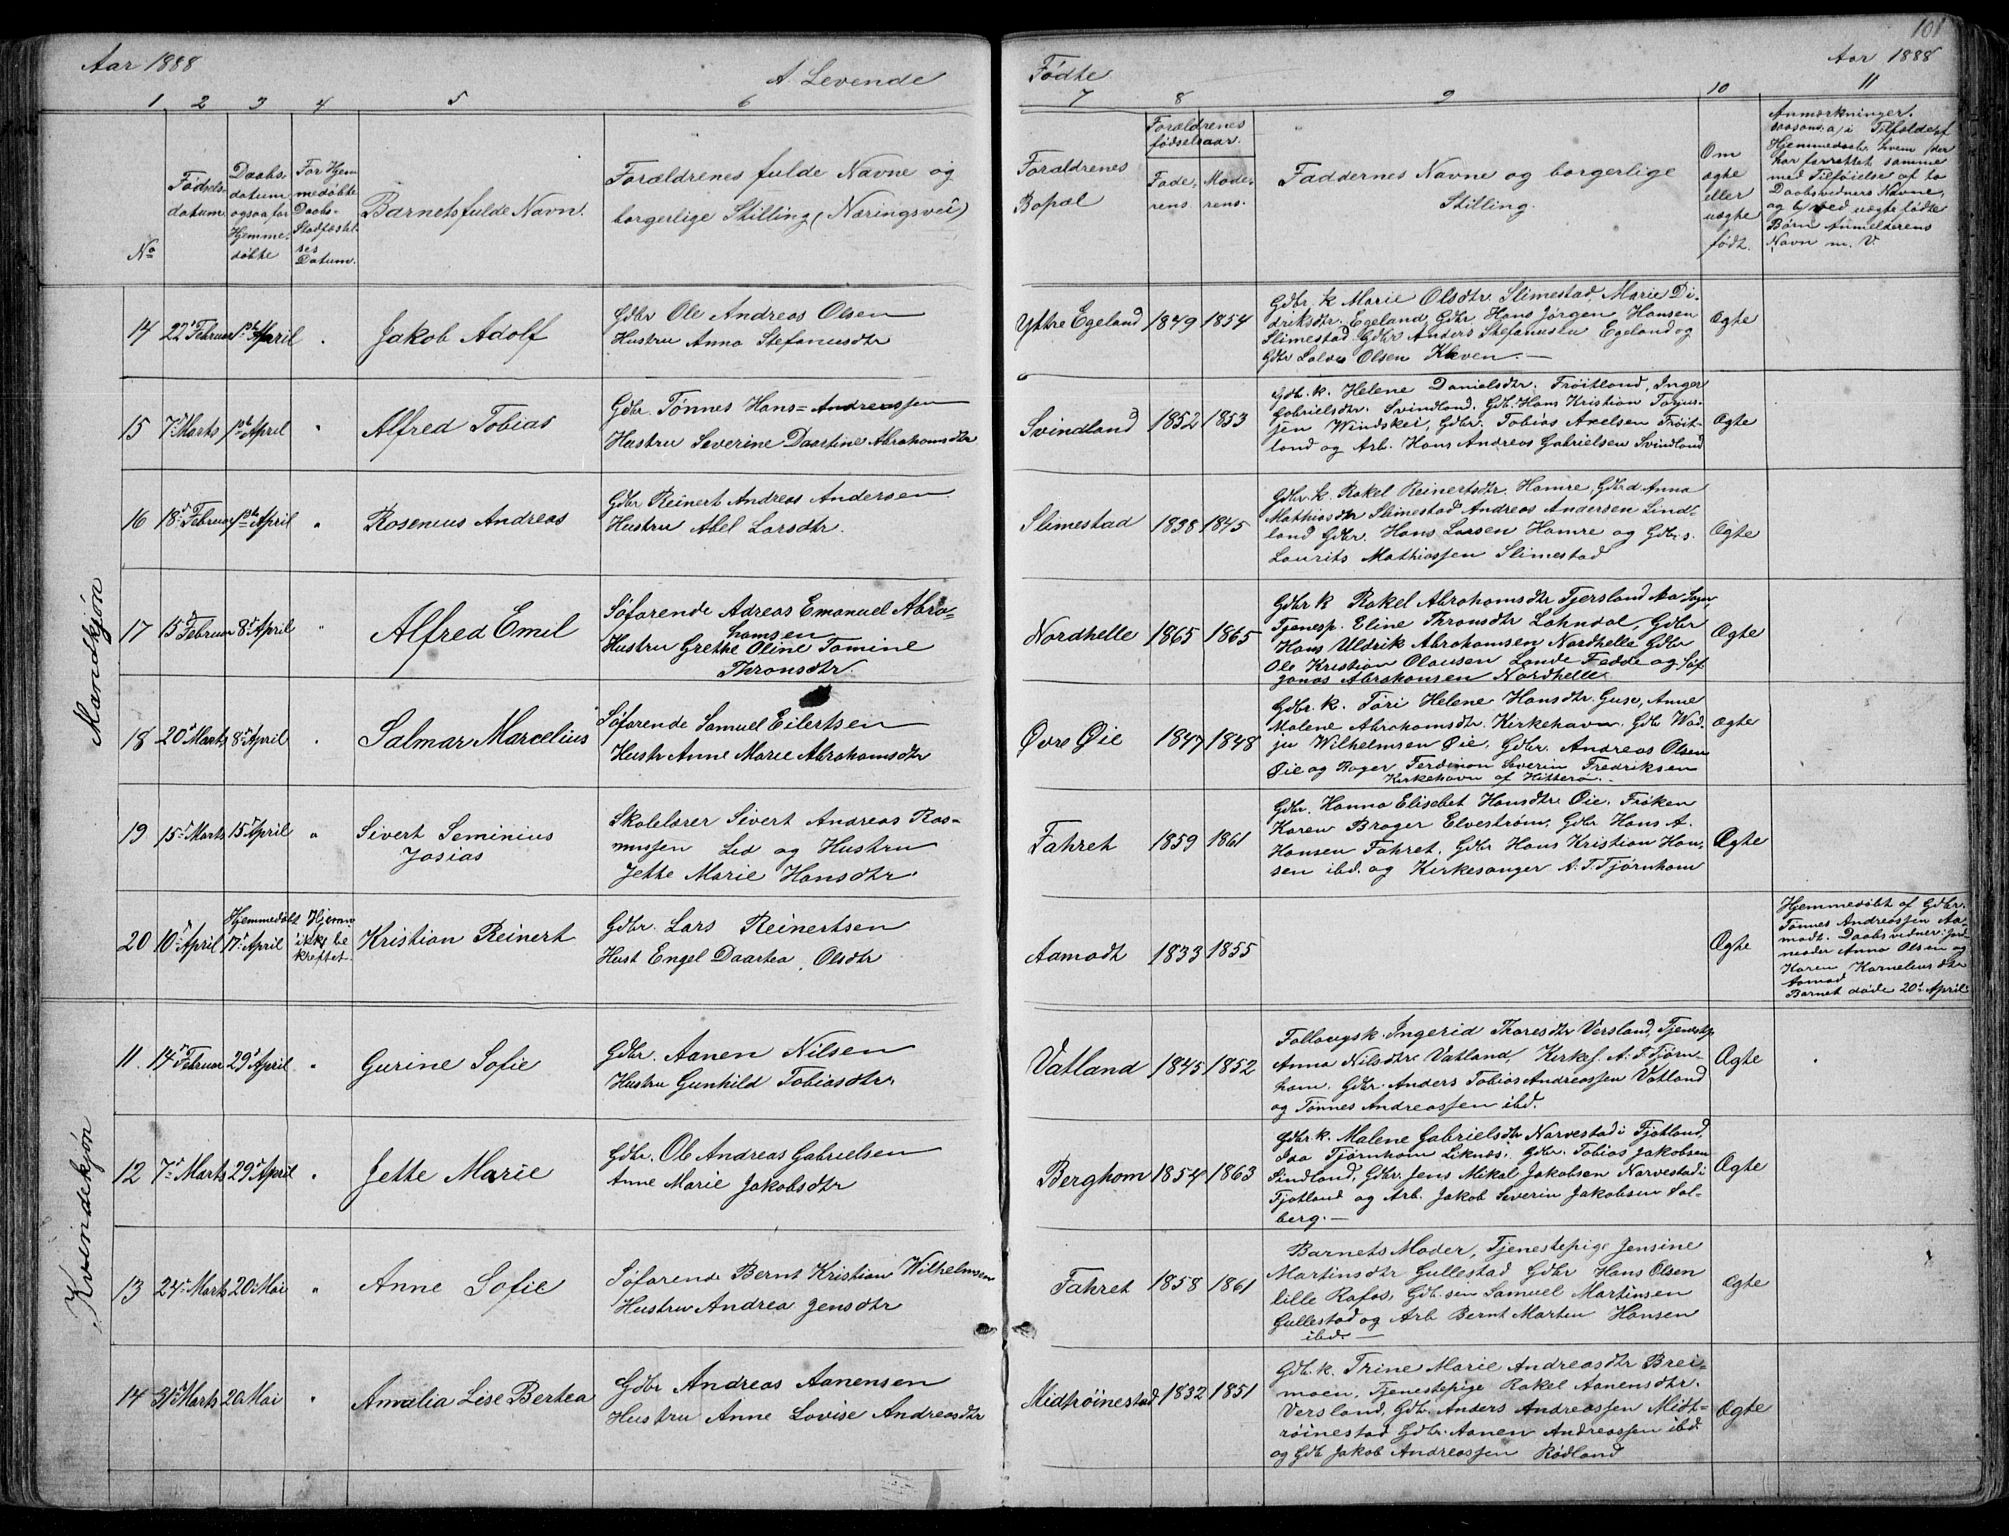 101
Aar 1888
A. Levende
Fødte
Aar 1888
1 2 3 4 5 6 7 8 9 10 11
No
Fødsels-
datum
Daabs-
datum
ogsaa for
Hjemme-
døbte
For Hjem
medøbte
Daabs-
Stadfæstel-
ses
Datum.
Barnets fulde Navn.
Forældrenes fulde Navne og
borgerlige Stilling (Næringsvei)
Forældrenes
Bopæl
Forældrenes
fødselsaar.
Fade-
rens
Mode-
rens.
Faddernes Navne og borgerlige
Stilling.
Om
ægte
eller
uægte
født.
Anmærkninger.
saasom: a, i Tilfælde af
Hjemmedaab hvem der
har forrettet samme
med Tilføielse af to
Daabsvidners Navne,
og b, ved uægte fødte
Børn Anmelderens
Navn m. V.
Mandkjøn
14 22 Februar 1ste April " Jakob Adolf
Gdbr Ole Andreas Olsen
Hustru Anna Stefanusdtr
Yttre Egeland 1849 1854
Gdbr. k Marie Olsdtr. Slimestad, Marie Di-
driksdtr. Egeland Gdbr. Hans Jørgen Hansen
Slimestad Gdbr Anders Stefanusen Egeland og
Gdbr Salve Olsen Kleven. —
Ægte
15 7 Marts 1ste April " Alfred Tobias
Gdbr. Tønnes Hans= Andreassen
Hustru Severine Daartine Abrahamsdtr
Svindland 1852 1853
Gdb. k. Helene Danielsdtr. Trøitland, Inger
Gabrielsdtr. Svindland. Gdb. Hans Kristian Tarjus-
sen Windskei, Gdbr. Tobias Axelsen Trøit-
land og Arb. Hans Andreas Gabrielsen Svindland
Ægte
16 18 Februar 1ste April " Rosenius Andreas
Gdbr Reinert Andreas Andersen
Hustru Abel Larsdtr.
Slimestad 1838 1845
Gdbr. k. Rakel Reinertsdtr. Hamre, Gdbr d. Anna
Mathiasdtr Slimestad Andreas Andersen Lind-
land Gdbr. Hans Larsen Hamre og Gdbr. s.
Laurits Mathiassen Slimestad
Ægte
17 15 Februar 8 April " Alfred Emil
Søfarende Adreas Emanuel Abra-
hamsen
Hustru Grethe Oline Tomine
Thronsdtr.
Nordhelle 1865 1865
Gdbr k Rakel Abrahamsdtr Tjersland Aa Sogn,
Tjenesp. Eline Thronsdtr Løhndal, Gdbr
Hans Uldrik Abrahamsen Nordhelle Gdbr
Ole Kristian Olausen Lande Fedde og Søf
Jonas Abrahamsen Nordhelle
Ægte
18 20 Marts 8 April " Salmar Marcelius
Søfarende Samuel Eilertsen
Hustr Anne Marie Abrahamsdtr
Øvre Øie 1847 1848
Gdbr. k. Tøri Helene Hansdtr. Guse, Anne
Malene Abrahamsdtr. Kirkehavn. Gdb Wad-
ju Wilhelmsen Øie, Gdbr. Andreas Olsen
Øie og Bager Ferdinan Severin Fredriksen
Kirkehavn af Hitterø. -
ægte
19 15 Marts 15 April " Sivert Seminius
Josias
Skolelærer Sivert Andreas Ras-
mussen Lid og Hustru
Jette Marie Hansdtr.
Fahret 1859 1861
Gdbr. Hanna Elisebet Hansdtr. Øie. Frøken
Karen Brager Elvestrøm, Gdbr Hans A.
Hansen Fahret, Gdbr Hans Kristian Han-
sen ibd. og Kirkesanger A. T. Tjørnhom
Ægte
20 10 April Hjemmedøbt
17 April
Hjem
ikke be
kræftet.
Kristian Reinert
Gdbr. Lars Reinertsen
Hust Engel Daartea Olsdtr
Aamodt 1833 1855
Ægte
Hjemmedøbt af Gdbr.
Tønnes Andreassen Aa-
modt. Daabsvidner: Jord-
moder Anna Olsen og
Karen Korneliusdtr
Aamod
Barnet døde 20 April
Kvindekjøn
11. 14 Februar 29 April " Gurine Sofie
Gdbr. Aanen Nilsen
Hustru Gunhild Tobiasdtr.
Vatland 1845 1852
Follougsk. Ingerid Tharesdtr Versland, Tjenestp
Anna Nilsdtr Vatland, Kirkes. A. T. Tjørn-
hom. Gdbr. Anders Tobias Andreassen Vatland
og Tønnes Andreassen ibd.
Ægte
12 7 Marts 29 April " Jette Marie
Gdbr. Ole Andreas Gabrielsen
Anne Marie Jakobsdtr
Berghom 1854 1863
Gdbr. k. Malene Gabrielsdtr Narvestad i Fjotland,
Ida Tjørnhom Liknes, Gdbr. Tobias Jakobsen
Sindland, Gdbr. Jens Mikal Jakobsen Narvestad i
Fjotland og Arb. Jakob Severin Jakobsen Sol-
berg. —
Ægte
13 24 Marts 20 Mai " Anne Sofie
Søfarende Bernt Kristian Wilhelmsen
Hustru Andrea Jensdtr
Fahret 1858 1861
Barnets Moder, Tjenestepige Jensine
Martinsdtr Gullestad Gdbr Hans Olsen
lille Rafos, Gdb. søn Samuel Martinsen
Gullestad og Arb Bernt Marten Hansen
ibd. —
Ægte
14 31 Marts 20 Mai " Amalia Lise Bertea
Gdbr Andreas Aanensen
Hustru Anne Lovise Andreasdtr
Midtrøinestad 1832 1851
Gdb. k. Trine Marie Andreasdtr Brei-
moen, Tjenestepige Rakel Aanensdtr.
Versland, Gdb. Anders Andreassen Midt-
røinestad Gdbr. Aanen Andreassen ibd
og Gdb Jakob Andreassen Rødland
Ægte